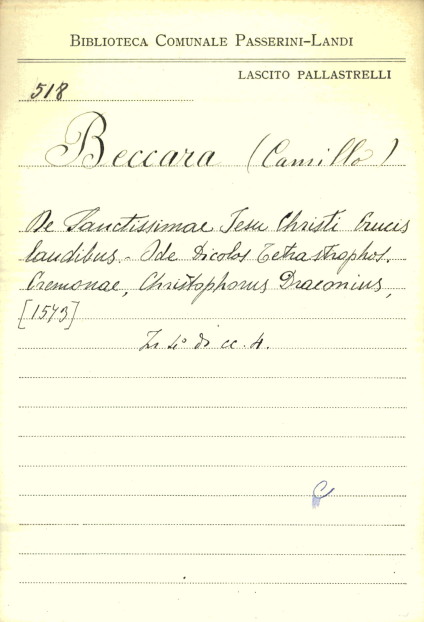 BIBLIOTECA COMUNALE PASSERINI-LANDI
LASCITO PALLASTRELLI
518
Beccara (Camillo)
De Sanctissimae Jesu Christi Crucis
laudibus - Ode Dicolos Tetrastrophos.
Cremonae, Christophorus Draconius,
[1573]
In 4° di cc. 4.
C